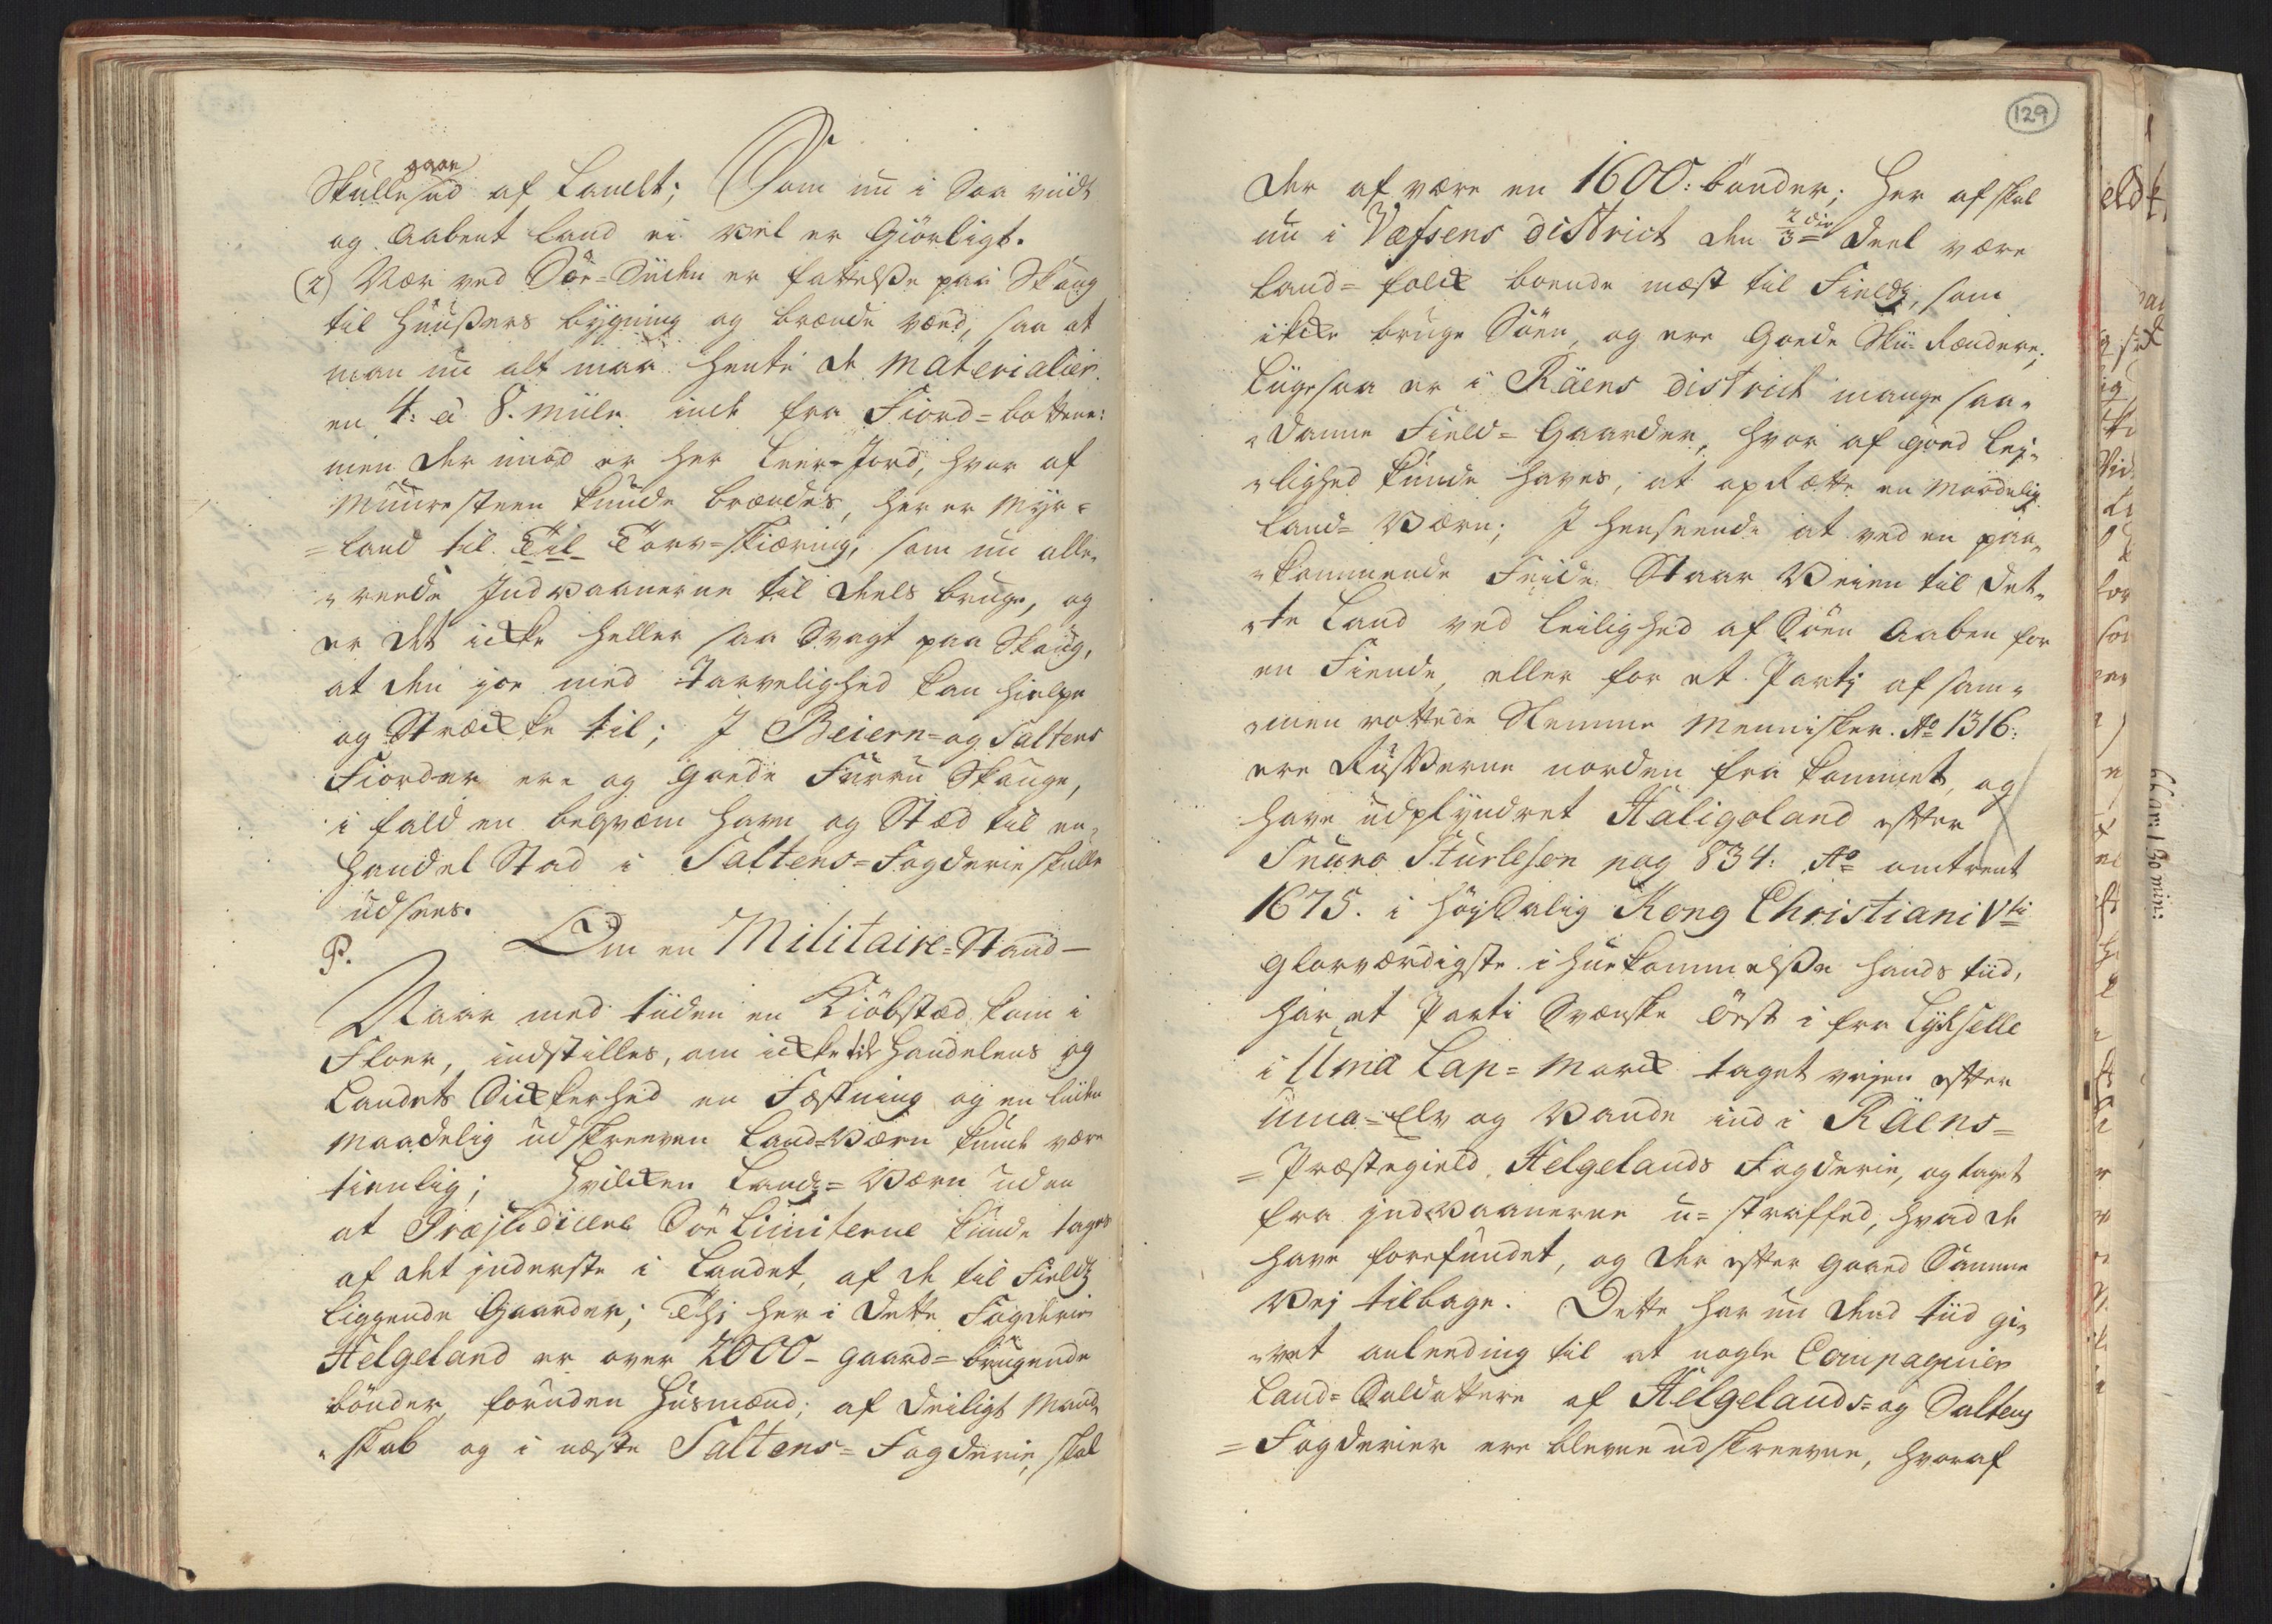 gaae
Skulle ud af Landt; Som nu i saa viidt
og Aabent Land ei vel er Giørligt.
(2) Nær ved Søe-Siiden er fattelße paa Skoug
til Huußers bygning og brænde væed, saa at
man nu alt maa hente de Materialier
en 4: à 8. Miile inde fra Fiord-bottene:
men der imod er her Leer-Jord, hvor af
Muuresteen kunde brændes, her er Myr-
=land til Til Torv-skiæring, som nu alle-
reede Indvaanerne til deels bruge, og
er det icke heller saa Svagt paa Skoug,
at den joe med Tarvelighed kan hielpe
og Strecke til; I Beiern- og Saltens
Fiorder ere og goede Furru Skouge,
i fald en beqvæm Havn og Stæd til en
Handel Stad i Saltens-Fogderie skulle
udsees.
P. Om en Militaire-Stand-
Naar med tiiden en Kiöbstæd kom i
Floer, indstilles, om icke til Handelens og
Landets Sickerhed en Fæstning og en liiden
Maadelig udskreeven Land-Værn kunde være
tienlig; Hvilcken Land-Værn uden
at Præjudicere Søe Limiterne kunde tages
af det inderste i Landet, af de til Fieldz
liggende Gaarder; Thj her i dette Fogderie
Helgeland er over 2000- gaard-brugende
bönder, foruden Husmænd; af deiligt Mand-
skab og i næste Saltens-Fogderie, skal
129
der af være en 1600: bönder; Her af skal
nu i Vefsens district den 2/3 die Deel være
Land-folck boende mæst til Fieldz, som
icke bruge Söen, og ere goede Skii-Rændere;
Liigesaa er i Räens district mange saa-
danne Field-Gaarder, hvor af goed Lej-
lighed kunde haves, at oprætte en Maadelig
Land-Værn; I henseende at ved en paa-
kommende Feide Staar Veien til det-
te Land ved Leilighed af Söen Aaben for
en Fiende, eller for et Partj af sam-
men rottede Slemme Mennisker. Ao 1316:
ere Rysserne norden fra kommet, og
have udplyndret Haligoland efter
Snuro Sturlesen pag 834: Ao omtrent
1675. i höysalig Kong Christiani Vti
Glorværdigste ihuekommelße hands tiid,
har et Parti Svenske Øst i fra Lykselle
i Uma Lap-Marck taget vejen efter
Uma-Elv og Vande ind i Räens-
=Præstegield, Helgelands Fogderie, og taget
fra indvaanerne u-straffed, hvad de
have forefundet, og der efter gaaed Samme
Vej tilbage. Dette har nu dend tiid gi-
vet anleeding til at nogle Compagnier
Land-Soldattere af Helgelands- og Saltens
=Fogderier ere blevne udskreevne, hvoraf